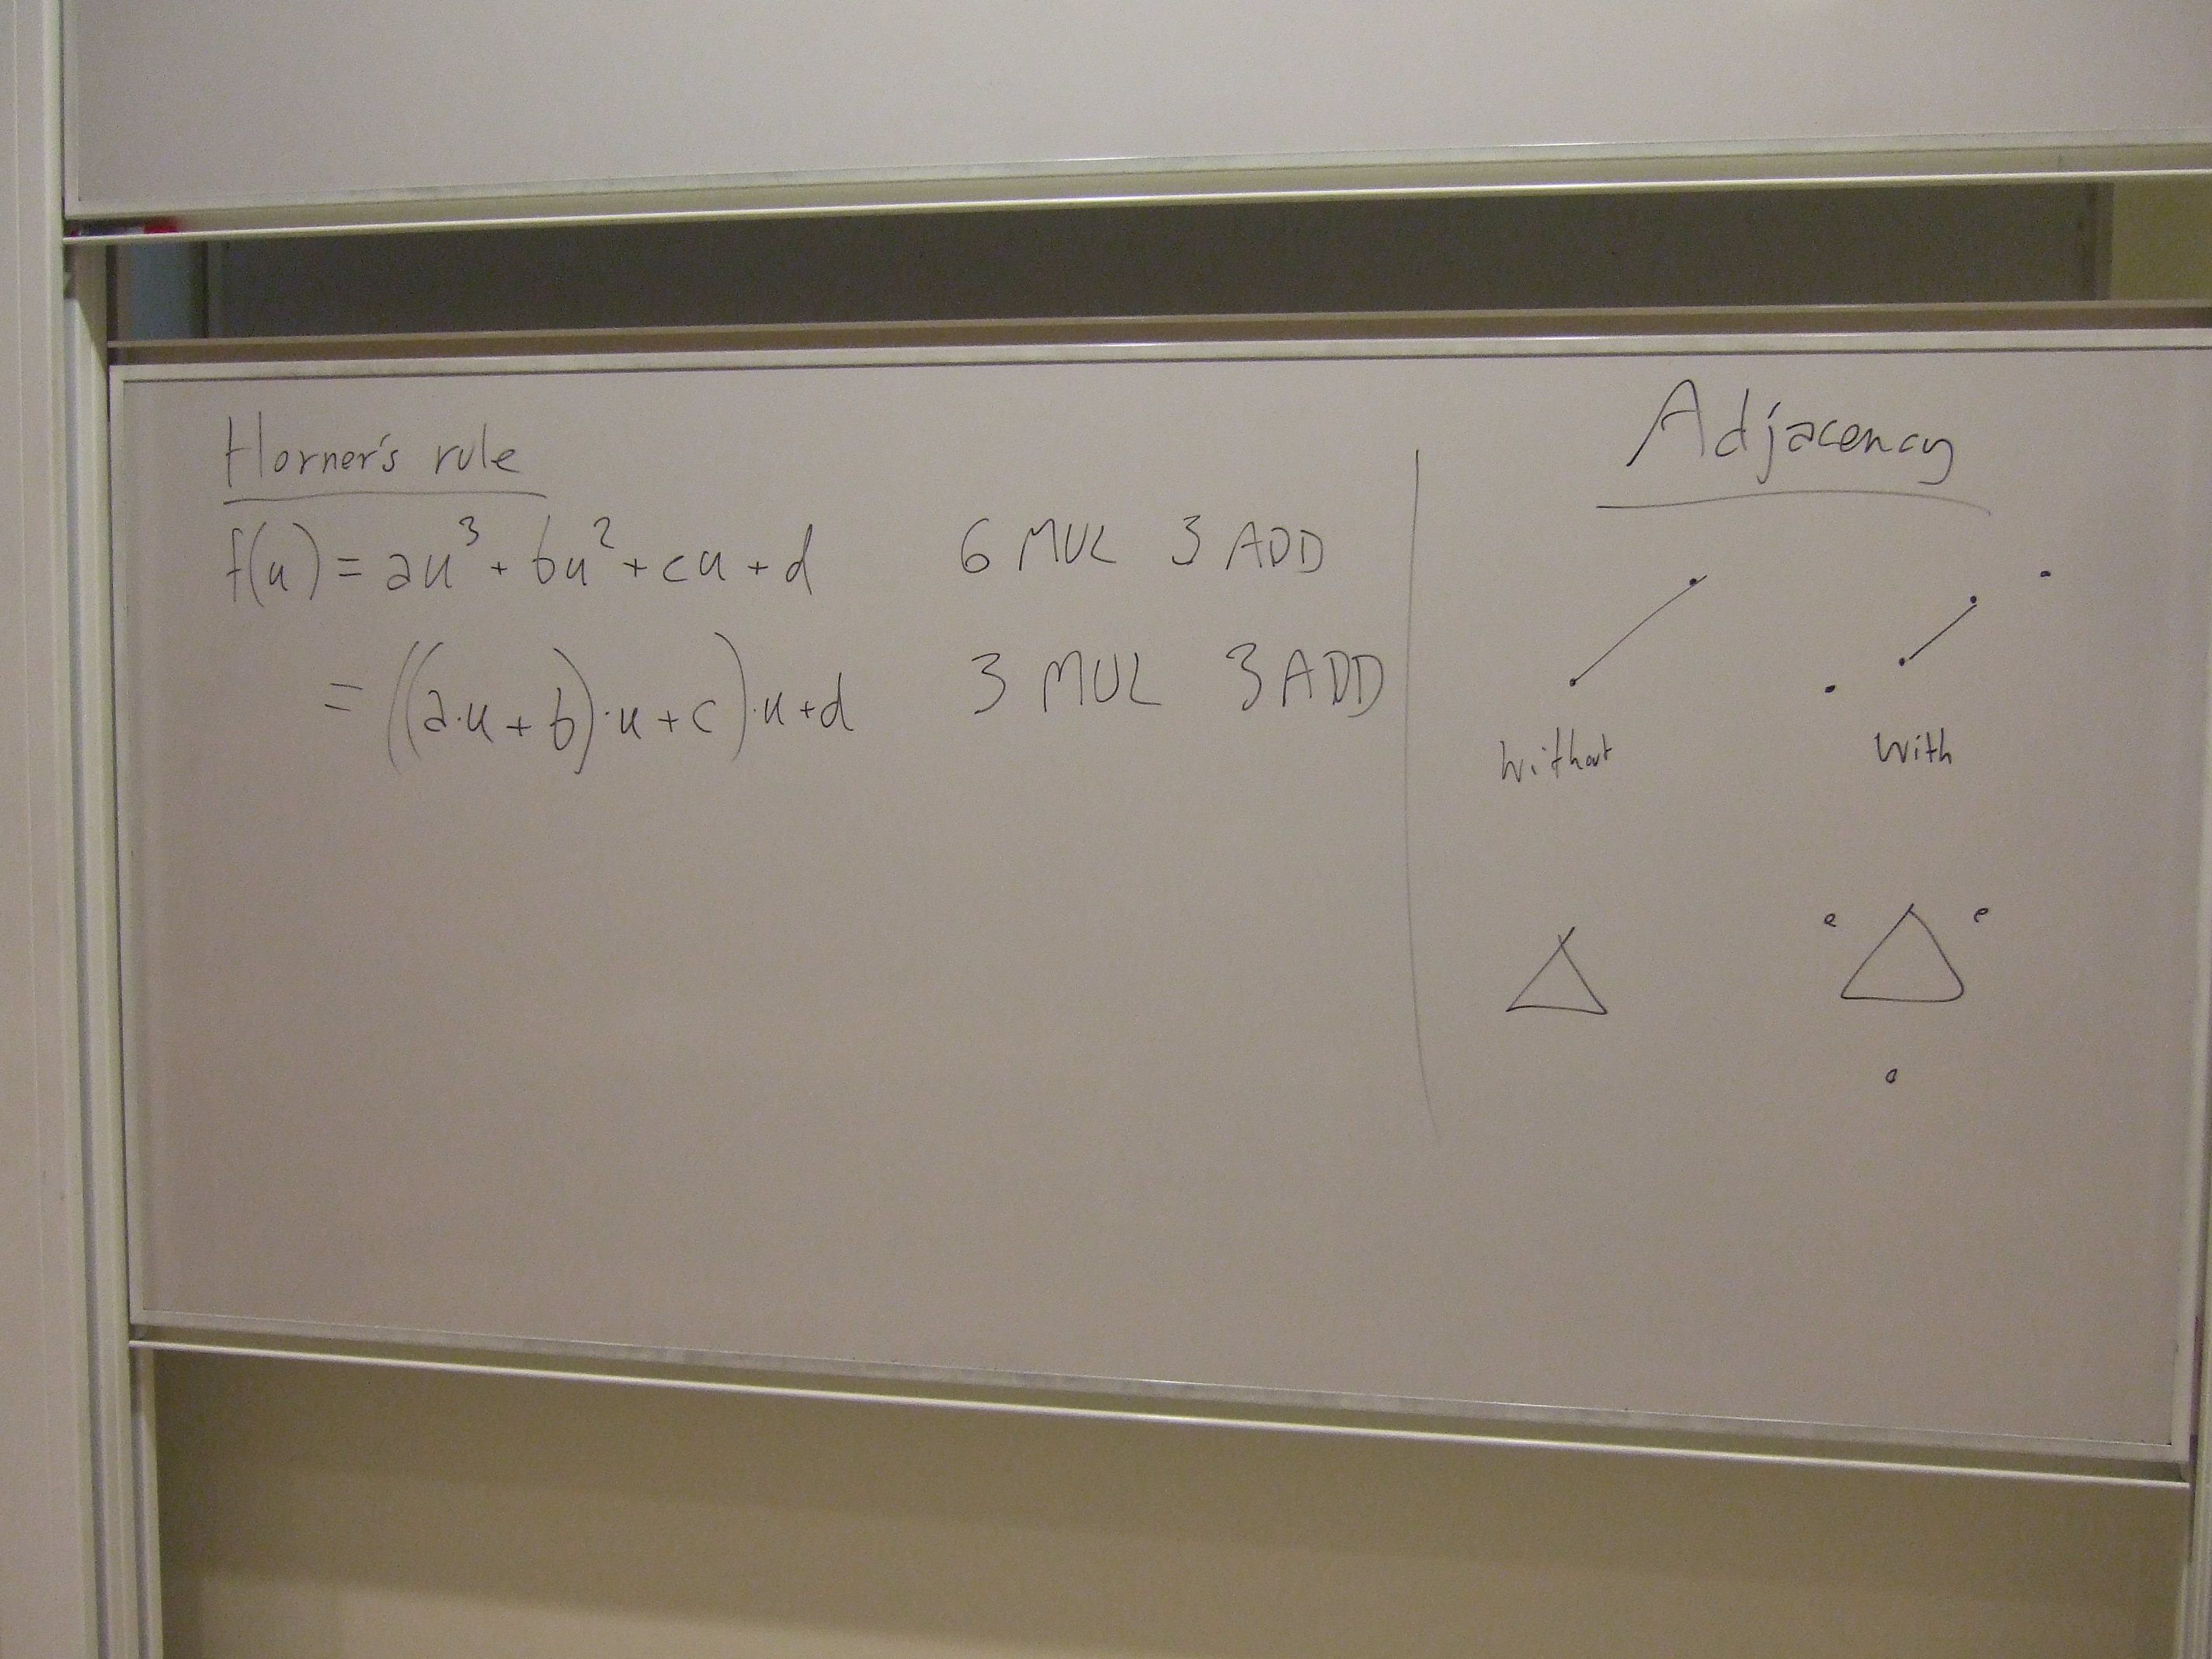 Horner's rule
f(u) = au³ + bu² + cu + d 6 MUL 3 ADD
= ((a·u + b)·u + c)·u + d 3 MUL 3 ADD
Adjacency
Without With